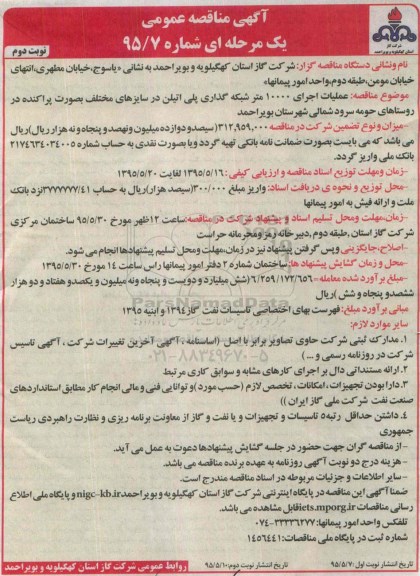 آگهی مناقصه عمومی
یک مرحله ای شماره ۹۵/۷
نوبت دوم
شرکت گاز
استان کهگیلویه و بویراحمد
نام ونشانی دستگاه مناقصه گزار: شرکت گاز استان کهگیلویه و بویراحمد به نشانی «یاسوج،خیابان مطهری،انتهای
خیابان مومن،طبقه دوم،واحد امور پیمانها»
موضوع مناقصه: عملیات اجرای ۱۰۰۰۰ متر شبکه گذاری پلی اتیلن در سایزهای مختلف بصورت پراکنده در
روستاهای حومه سرود شمالی شهرستان بویراحمد
-میزان و نوع تضمین شرکت در مناقصه ۳۱۲,۹۵۹,۰۰۰(سیصدو دوازده میلیون ونهصد و پنجاه و نه هزار ریال)ریال
می باشد که می بایست بصورت ضمانت نامه بانکی تهیه گردد ویا بصورت نقدی به حساب شماره ۲۱۷۴۶۳۴۰۳۴۰۰۵
بانک ملی واریز گردد.
-زمان ومهلت توزیع اسناد مناقصه و ارزیابی کیفی: ۱۳۹۵/۵/۱۶ لغایت ۱۳۹۵/۵/۲۰
-محل توزیع و نحوه ی دریافت اسناد: واریز مبلغ ۳۰۰/۰۰۰(سیصد هزار)ریال به حساب ۳۷۷۷۷۷۷/۴۱نزد بانک
ملت و ارائه فیش به امور پیمانها
-زمان،مهلت ومحل تسلیم اسناد و پیشنهاد شرکت در مناقصه:ساعت ۱۲ظهر مورخ ۹۵/۵/۳۰ ساختمان مرکزی
شرکت گاز استان، طبقه دوم ،دبیرخانه رمز ومحرمانه حراست
-اصلاح،جایگزینی وپس گرفتن پیشنهاد نیز در زمان،مهلت ومحل تسلیم پیشنهادها انجام می شود.
-محل و زمان گشایش پیشنهاد ها:ساختمان شماره ۲ دفتر امور پیمانها راس ساعت ۱۴ مورخ ۱۳۹۵/۵/۳۰
-مبلغ برآورد شده معامله=۶/۲۵۹/۱۷۲/۶۵۶(شش میلیارد و دویست و پنجاه ونه میلیون و یکصدو هفتاد و دو هزار
ششصدو پنجاه و شش )ریال
مبانی برآورد مبلغ: فهرست بهای اختصاصی تاسیسات نفت گاز۱۳۹۴ و ابنیه ۱۳۹۵
سایر موارد لازم:
۱. مدارک ثبتی شرکت حاوی تصاویر برابر با اصل (اساسنامه ، آگهی آخرین تغییرات شرکت ، آگهی تاسیس
شرکت در روزنامه رسمی و ... )
۲. ارائه مستنداتی دال بر اجرای کارهای مشابه و سوابق کاری مرتبط
۳. دارا بودن تجهیزات ، امکانات ، تخصص لازم (حسب مورد)و توانایی فنی و مالی انجام کار مطابق استانداردهای
صنعت نفت شرکت ملی گاز ایران ))
۴. داشتن حداقل رتبه۵ تاسیسات و تجهیزات و یا نفت و گاز از معاونت برنامه ریزی و نظارت راهبردی ریاست
جمهوری
- از مناقصه گران جهت حضور در جلسه گشایش پیشنهادها دعوت به عمل می آید.
- هزینه درج دو نوبت آگهی روزنامه به عهده برنده مناقصه می باشد.
- سایر اطلاعات و جزئیات مربوطه در اسناد مناقصه مندرج است.
ضمنا آگهی این مناقصه در پایگاه اینترنتی شرکت گاز استان کهگیلویه و بویراحمدnigc-kb.ir و پایگاه ملی اطلاع
رسانی مناقصاتiets.mporg.irقابل مشاهده می باشد.
تلفکس واحد امور پیمانها: ۳۳۳۳۶۲۷۷-۰۷۴
شماره ثبت در پایگاه ملی مناقصات: ۱۴۵۶۴۴۱
تاریخ انتشار نوبت اول :۹۵/۵/۷
تاریخ انتشار نوبت دوم :۹۵/۵/۱۰
روابط عمومی شرکت گاز استان کهگیلویه و بویراحمد
ParsNamadData
۰۲۱-۸۸۳۴۹۶۷۰-۵